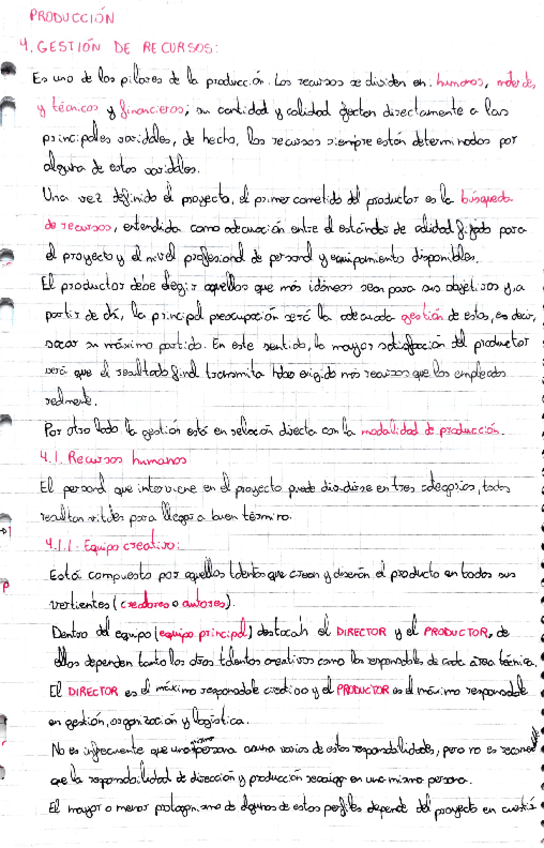 PRODUCCIÓN
4. GESTIÓN DE RECURSOS:
Es uno de los pilares de la producción. Los recursos se dividen en: humanos, materiales,
y técnicos y financieros; su cantidad y calidad afectan directamente a las
principales variables, de hecho, los recursos siempre están determinados por
alguna de estas variables.
Una vez definido el proyecto, el primer cometido del productor es la búsqueda
de recursos, entendida como adecuación entre el estándar de calidad fijado para
el proyecto y el nivel profesional de personal y equipamiento disponibles.
El productor debe elegir aquellos que más idóneos sean para sus objetivos y, a
partir de ahí, la principal preocupación será la adecuada gestión de estos, es decir,
sacar su máximo partido. En este sentido, la mayor satisfacción del productor
será que el resultado final transmita haber exigido más recursos que los empleados
realmente.
Por otro lado la gestión está en relación directa con la modalidad de producción.
4.1. Recursos humanos
El personal que interviene en el proyecto puede dividirse en tres categorías, todas
resultan vitales para llegar a buen término.
4.1.1. Equipo creativo:
Está compuesto por aquellos talentos que crean y diseñan el producto en todas sus
vertientes (creadores o autores).
Dentro del equipo (equipo principal) destacan el DIRECTOR y el PRODUCTOR, de
ellos dependen tanto los otros talentos creativos como los responsables de cada área técnica.
El DIRECTOR es el máximo responsable creativo y el PRODUCTOR es el máximo responsable
en gestión, organización y logística.
No es infrecuente que una misma persona asuma varias de estas responsabilidades, pero no es
que la responsabilidad de dirección y producción recaiga en una misma persona.
El mayor o menor protagonismo de algunos de estos perfiles depende del proyecto en cuestión